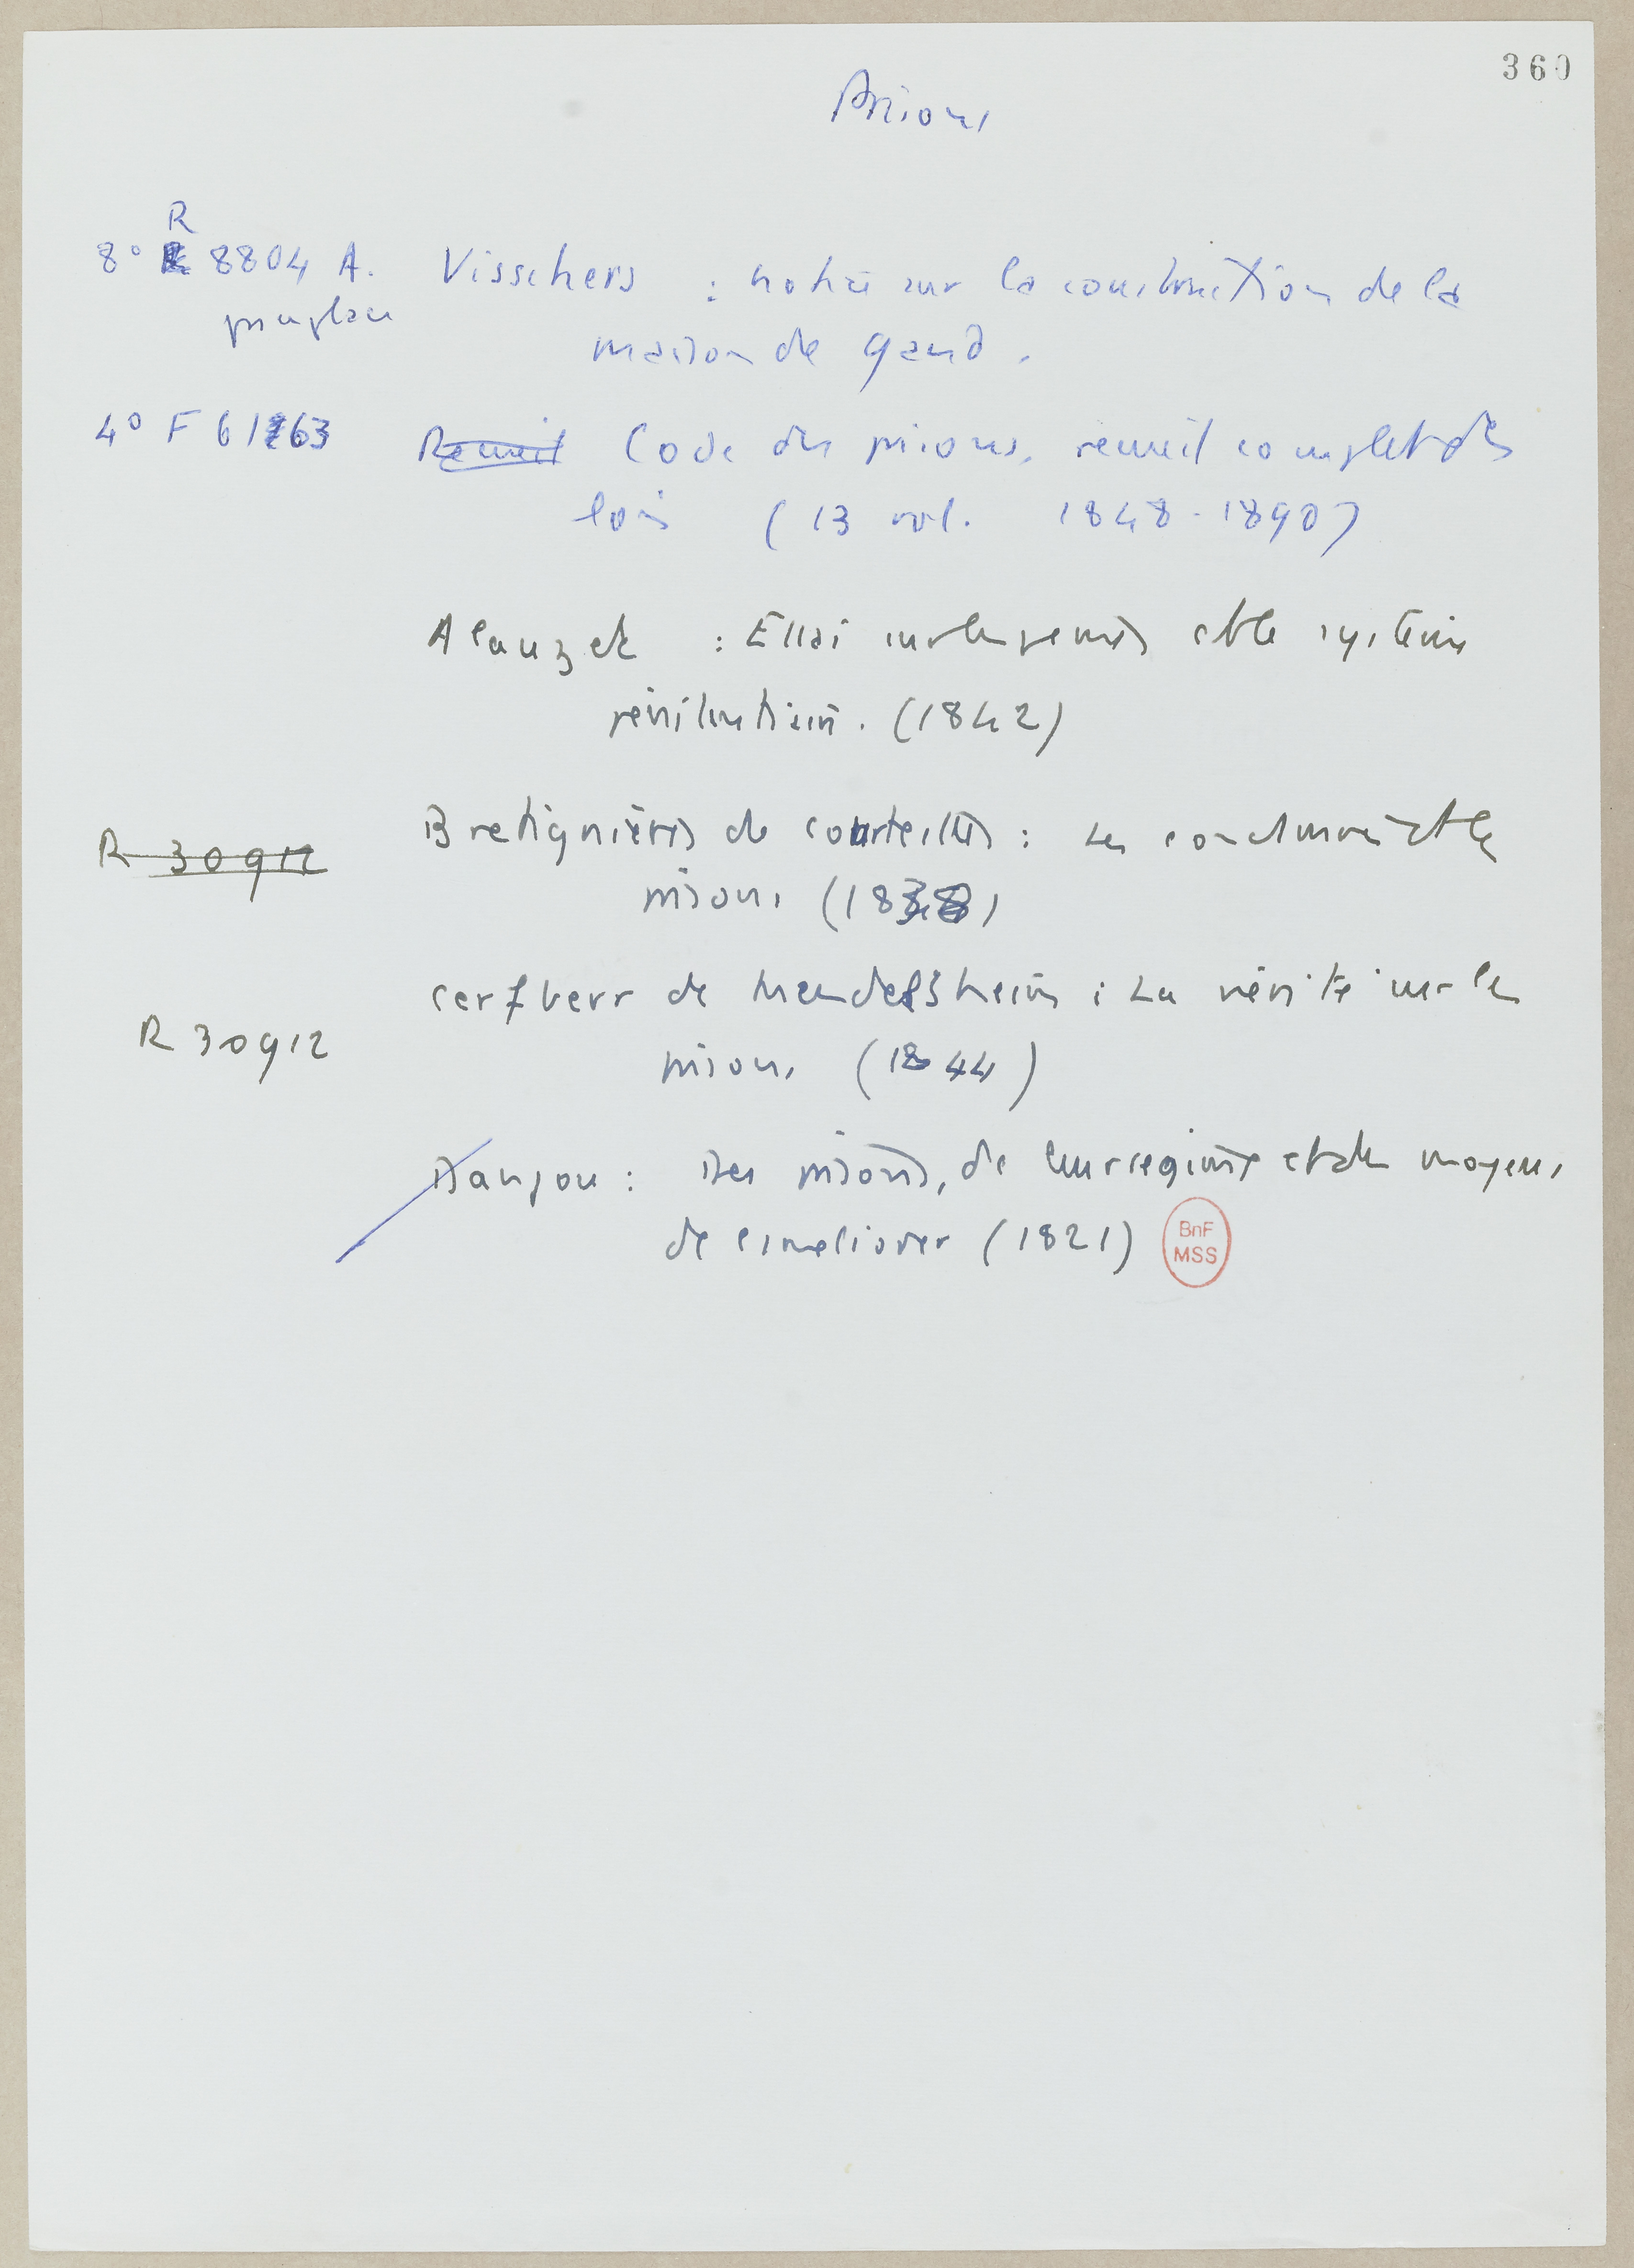 360
Prisons
R
8° 8804 A. Visschers : notice sur la construction de la
maison de gand.
4° F 6163 Recueil Code des prisons, recueil complet des
lois (13 vol. 1848-1890)
Alauzet : Essai sur les peines et le système
pénitentiaire. (1842)
R 30912 Bretignières de Courteilles : Les condamnés et les
prisons (1838)
Cerfberr de Medelsheim : La vérité sur les
R 30912
prisons (1844)
Danjou : Des prisons, de leur regime et des moyens
de l'ameliorer (1821)
BnF
MSS